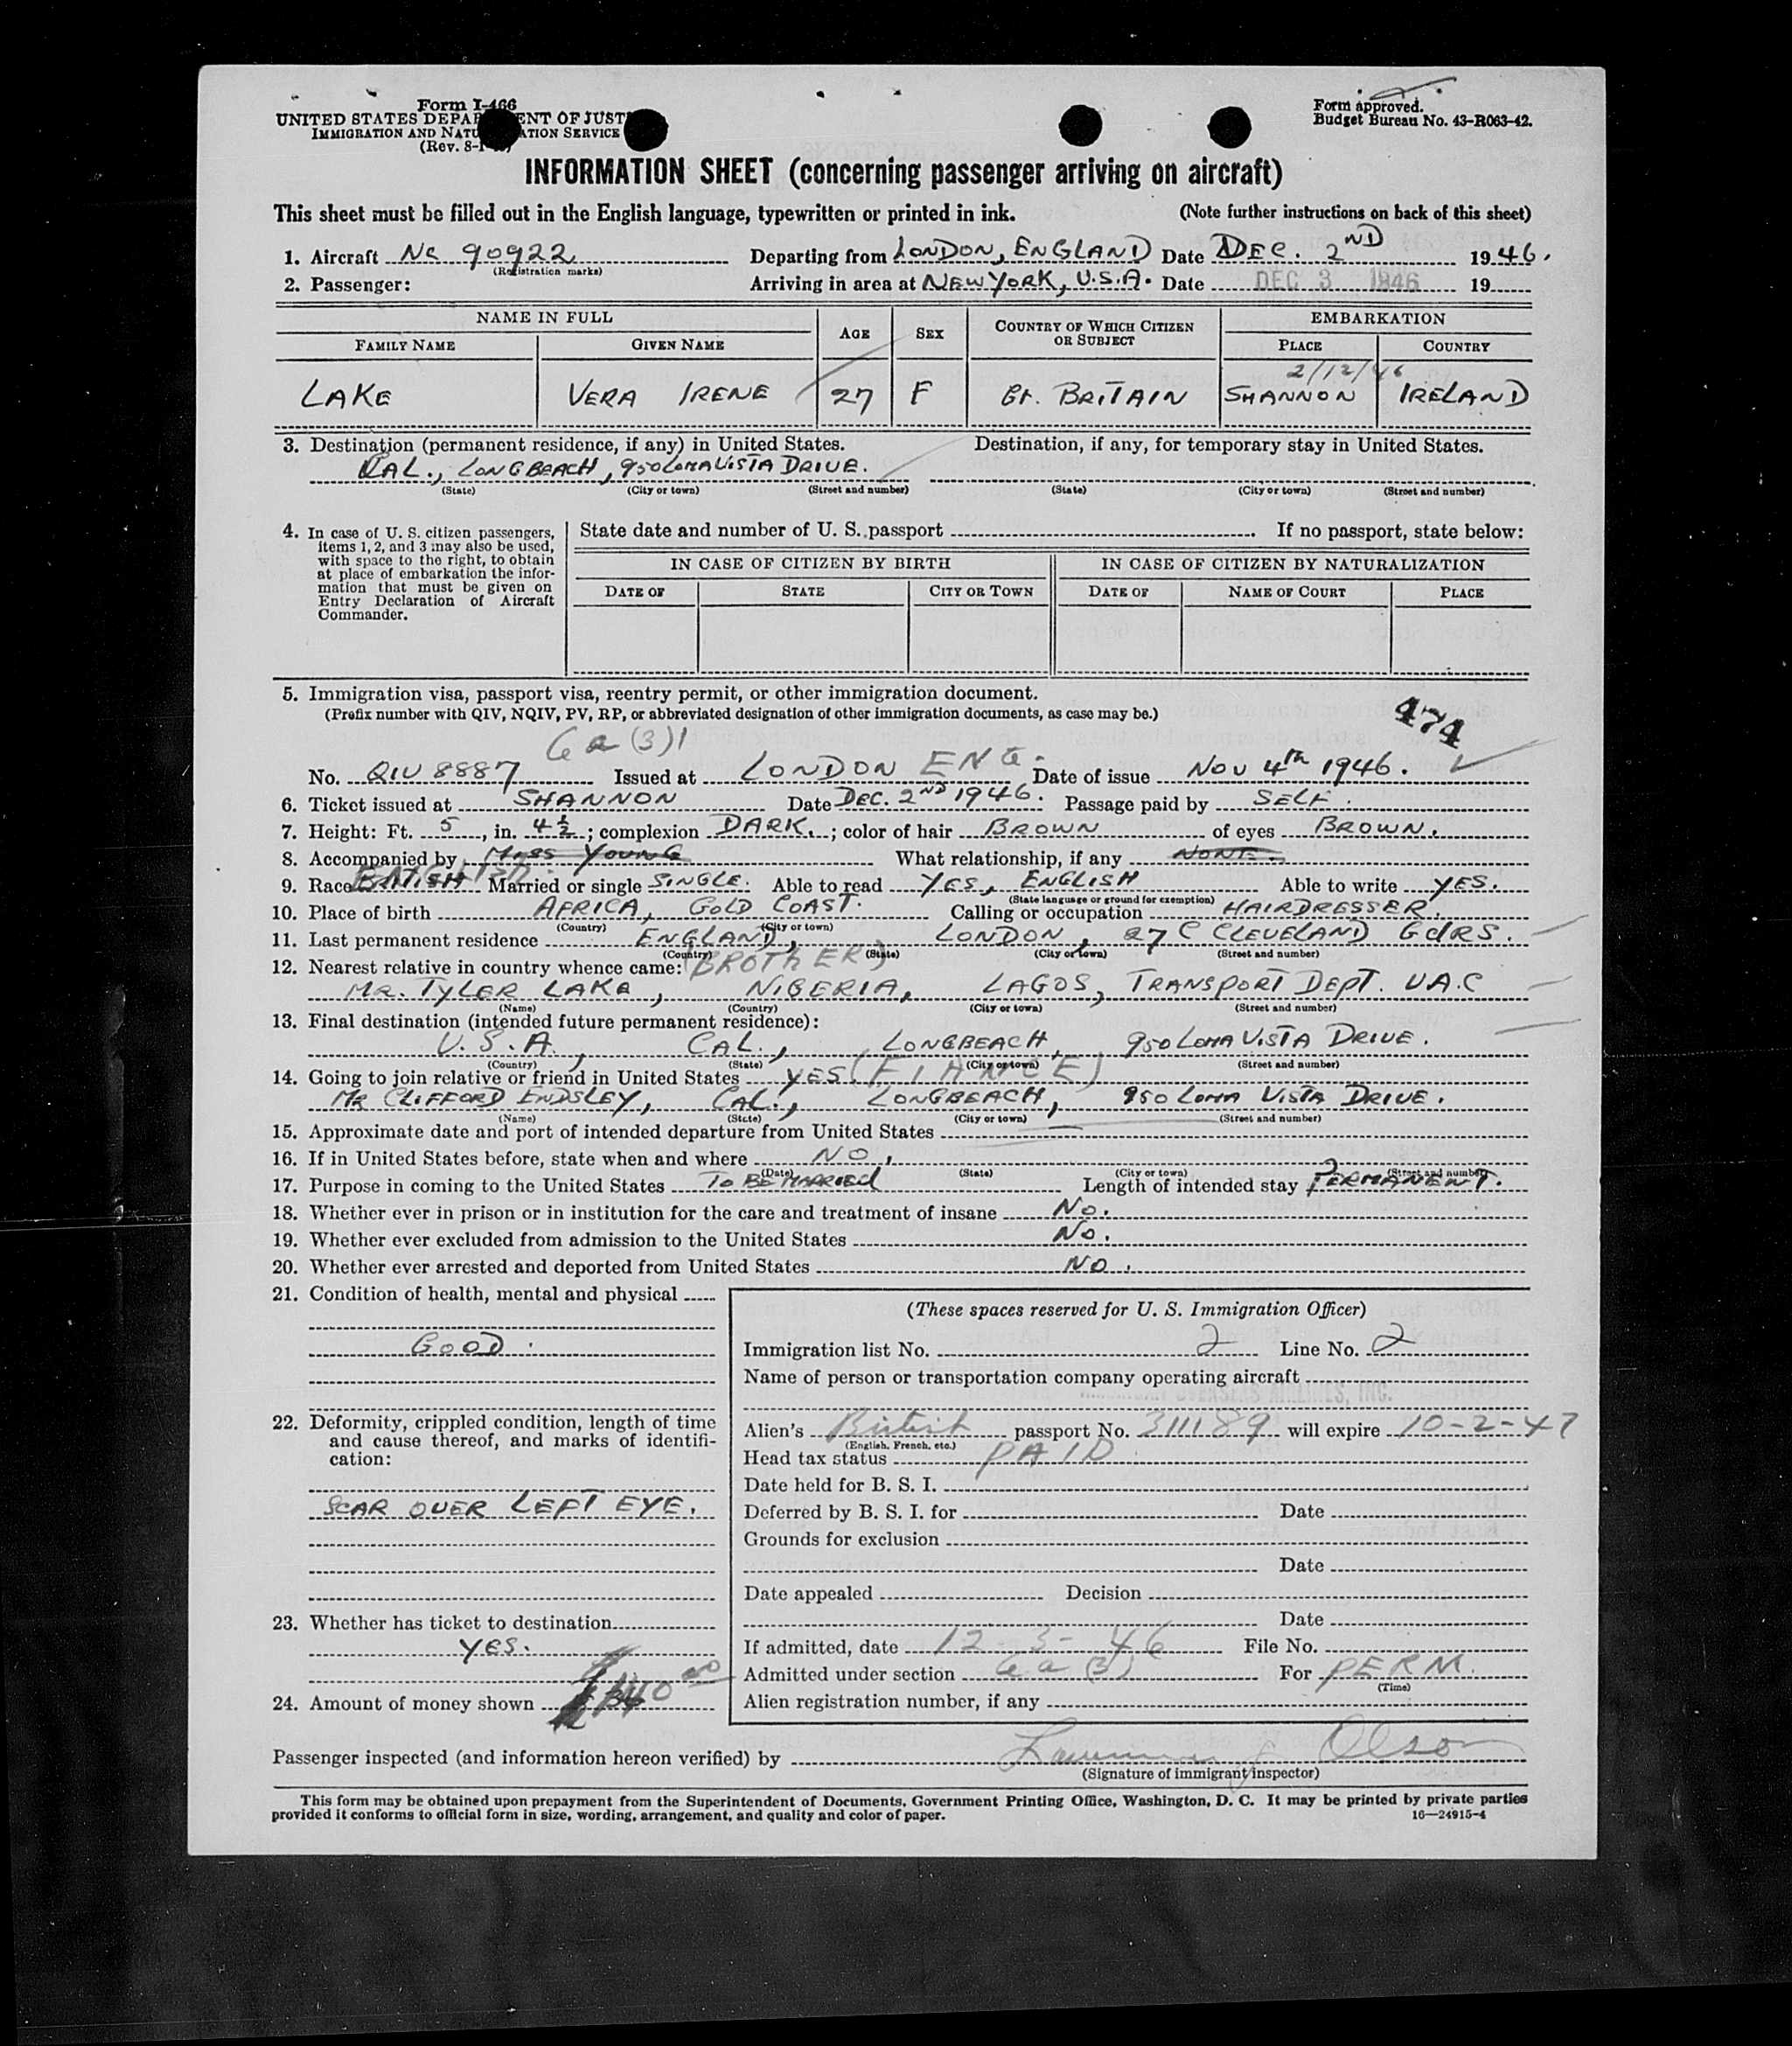 Form I-466
UNITED STATES DEPARTMENT OF JUSTICE
IMMIGRATION AND NATURALIZATION SERVICE
(Rev. 8-1-
Form approved.
Budget Bureau No. 43-R063-42.
INFORMATION SHEET (concerning passenger arriving on aircraft)
This sheet must be filled out in the English language, typewritten or printed in ink. (Note further instructions on back of this sheet)
1. Aircraft NC 90922 Departing from LONDON, ENGLAND Date DEC. 2ND 1946.
(Registration marks)
2. Passenger: Arriving in area at NEW YORK, U.S.A. Date DEC 3 1946 19
NAME IN FULL AGE SEX COUNTRY OF WHICH CITIZEN OR SUBJECT EMBARKATION
FAMILY NAME GIVEN NAME PLACE COUNTRY
2/12/46
LAKE VERA IRENE 27 F Gt. BRITAIN SHANNON IRELAND
3. Destination (permanent residence, if any) in United States. Destination, if any, for temporary stay in United States.
CAL., LONGBEACH, 950 LOMA VISTA DRIVE.
(State) (City or town) (Street and number) (State) (City or town) (Street and number)
4. In case of U. S. citizen passengers,
items 1, 2, and 3 may also be used,
with space to the right, to obtain
at place of embarkation the infor-
mation that must be given on
Entry Declaration of Aircraft
Commander.
State date and number of U. S. passport . If no passport, state below:
IN CASE OF CITIZEN BY BIRTH IN CASE OF CITIZEN BY NATURALIZATION
DATE OF STATE CITY OR TOWN DATE OF NAME OF COURT PLACE
5. Immigration visa, passport visa, reentry permit, or other immigration document.
(Prefix number with QIV, NQIV, PV, RP, or abbreviated designation of other immigration documents, as case may be.)
474
6a(3)1
No. QIV 8887 Issued at LONDON ENG. Date of issue NOV 4th 1946.
6. Ticket issued at SHANNON Date DEC. 2ND 1946. Passage paid by SELF.
7. Height: Ft. 5, in. 4½; complexion DARK.; color of hair BROWN of eyes BROWN.
8. Accompanied by Miss YOUNG What relationship, if any NONE.
ENGLISH
9. Race BRITISH Married or single SINGLE. Able to read YES, ENGLISH Able to write YES.
(State language or ground for exemption)
10. Place of birth AFRICA, GOLD COAST. Calling or occupation HAIRDRESSER.
(Country) (City or town)
11. Last permanent residence ENGLAND, LONDON, 27 C CLEVELAND GDRS.
(Country) (State) (City or town) (Street and number)
12. Nearest relative in country whence came: (BROTHER)
MR. TYLER LAKE, NIGERIA, LAGOS, TRANSPORT DEPT. U.A.C
(Name) (Country) (City or town) (Street and number)
13. Final destination (intended future permanent residence):
U.S.A., CAL., LONGBEACH, 950 LOMA VISTA DRIVE.
(Country) (State) (City or town) (Street and number)
14. Going to join relative or friend in United States YES (FIANCE)
MR CLIFFORD ENDSLEY, CAL., LONGBEACH, 950 LOMA VISTA DRIVE.
(Name) (State) (City or town) (Street and number)
15. Approximate date and port of intended departure from United States
16. If in United States before, state when and where NO.
(Date) (State) (City or town) (Street and number)
17. Purpose in coming to the United States TO BE MARRIED Length of intended stay PERMANENT.
18. Whether ever in prison or in institution for the care and treatment of insane NO.
19. Whether ever excluded from admission to the United States NO.
20. Whether ever arrested and deported from United States NO.
21. Condition of health, mental and physical
GOOD.
22. Deformity, crippled condition, length of time
and cause thereof, and marks of identifi-
cation:
SCAR OVER LEFT EYE.
23. Whether has ticket to destination
YES.
24. Amount of money shown $140 00
(These spaces reserved for U. S. Immigration Officer)
Immigration list No. 2 Line No. 2
Name of person or transportation company operating aircraft
OVERSEAS AIRLINES, INC.
Alien's British passport No. 311189 will expire 10-2-47
(English, French, etc.)
Head tax status PAID
Date held for B. S. I.
Deferred by B. S. I. for Date
Grounds for exclusion
Date
Date appealed Decision
Date
If admitted, date 12-3-46 File No.
Admitted under section 6a(3) For PERM.
(Time)
Alien registration number, if any
Passenger inspected (and information hereon verified) by Olson
(Signature of immigrant inspector)
This form may be obtained upon prepayment from the Superintendent of Documents, Government Printing Office, Washington, D. C. It may be printed by private parties
provided it conforms to official form in size, wording, arrangement, and quality and color of paper. 16—24915-4